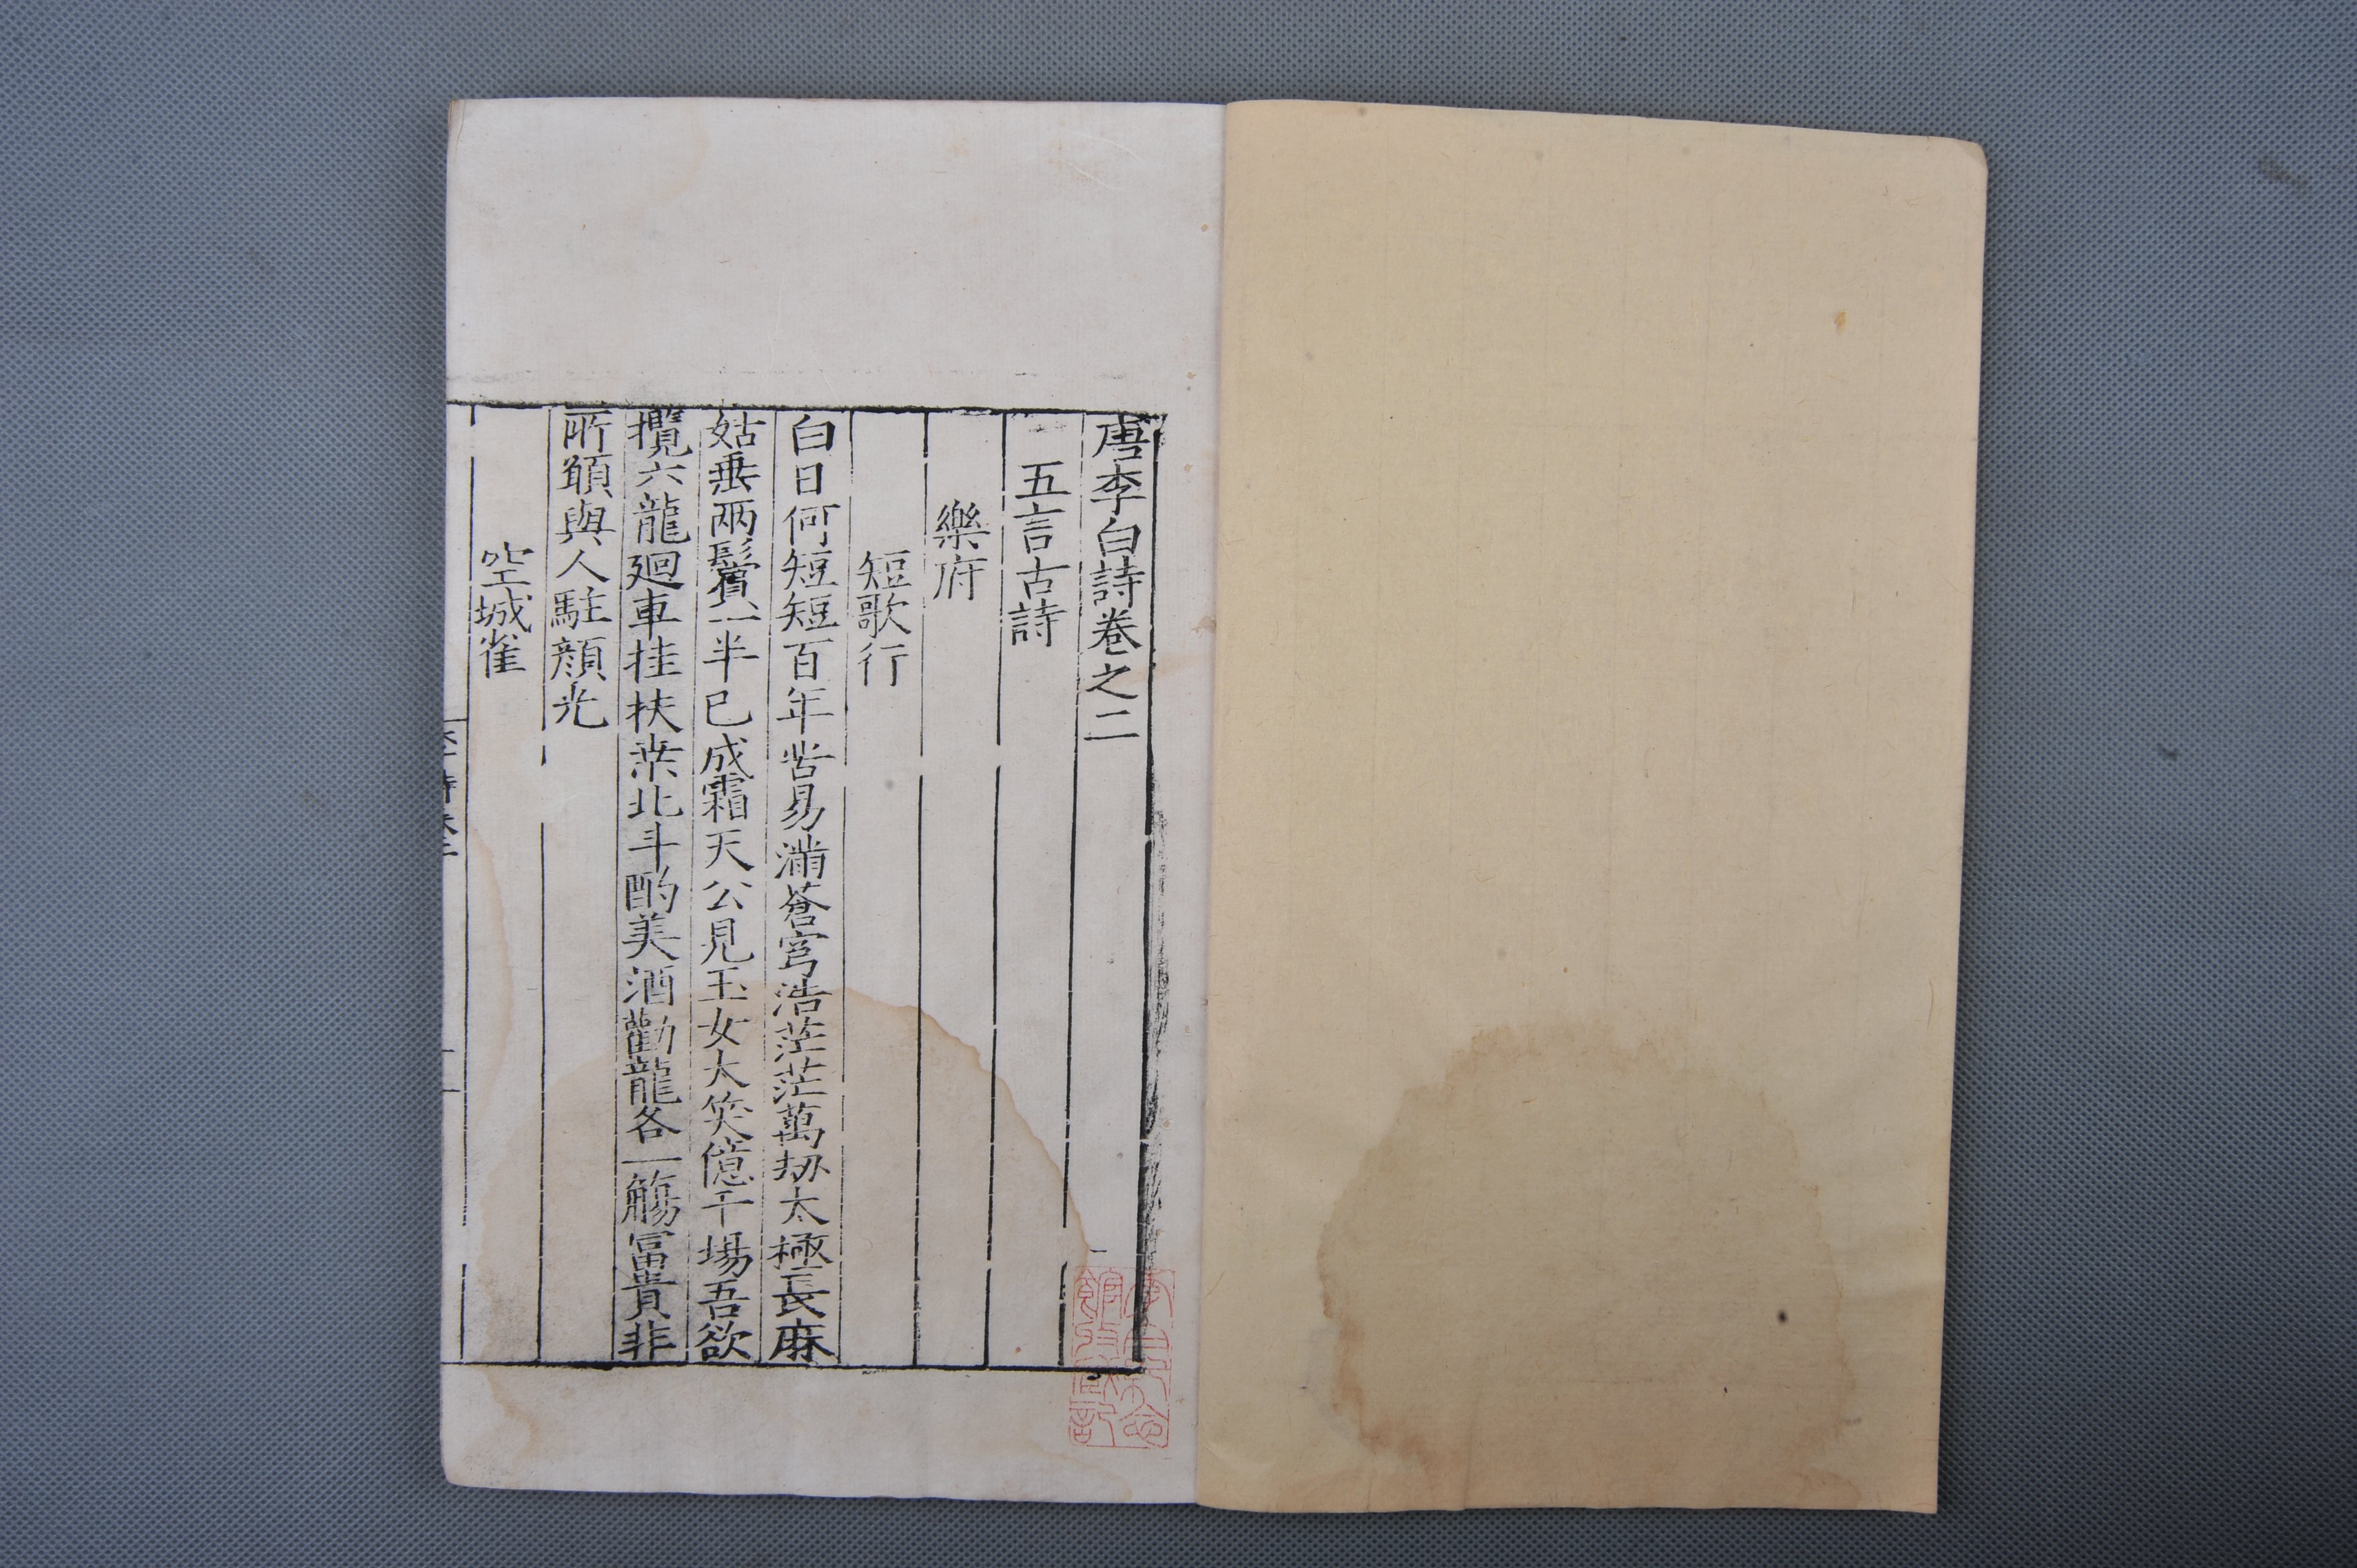 唐李白詩卷之二
五言古詩
樂府
短歌行
白日何短短百年苦易滿蒼穹浩茫茫萬劫太極長麻
姑垂兩鬢一半已成霜天公見玉女大笑億千場吾欲
攬六龍廻車挂扶桒北斗酌美酒勸龍各一觴冨貴非
所願與人駐顔光
空城雀
李白紀念
館收藏記